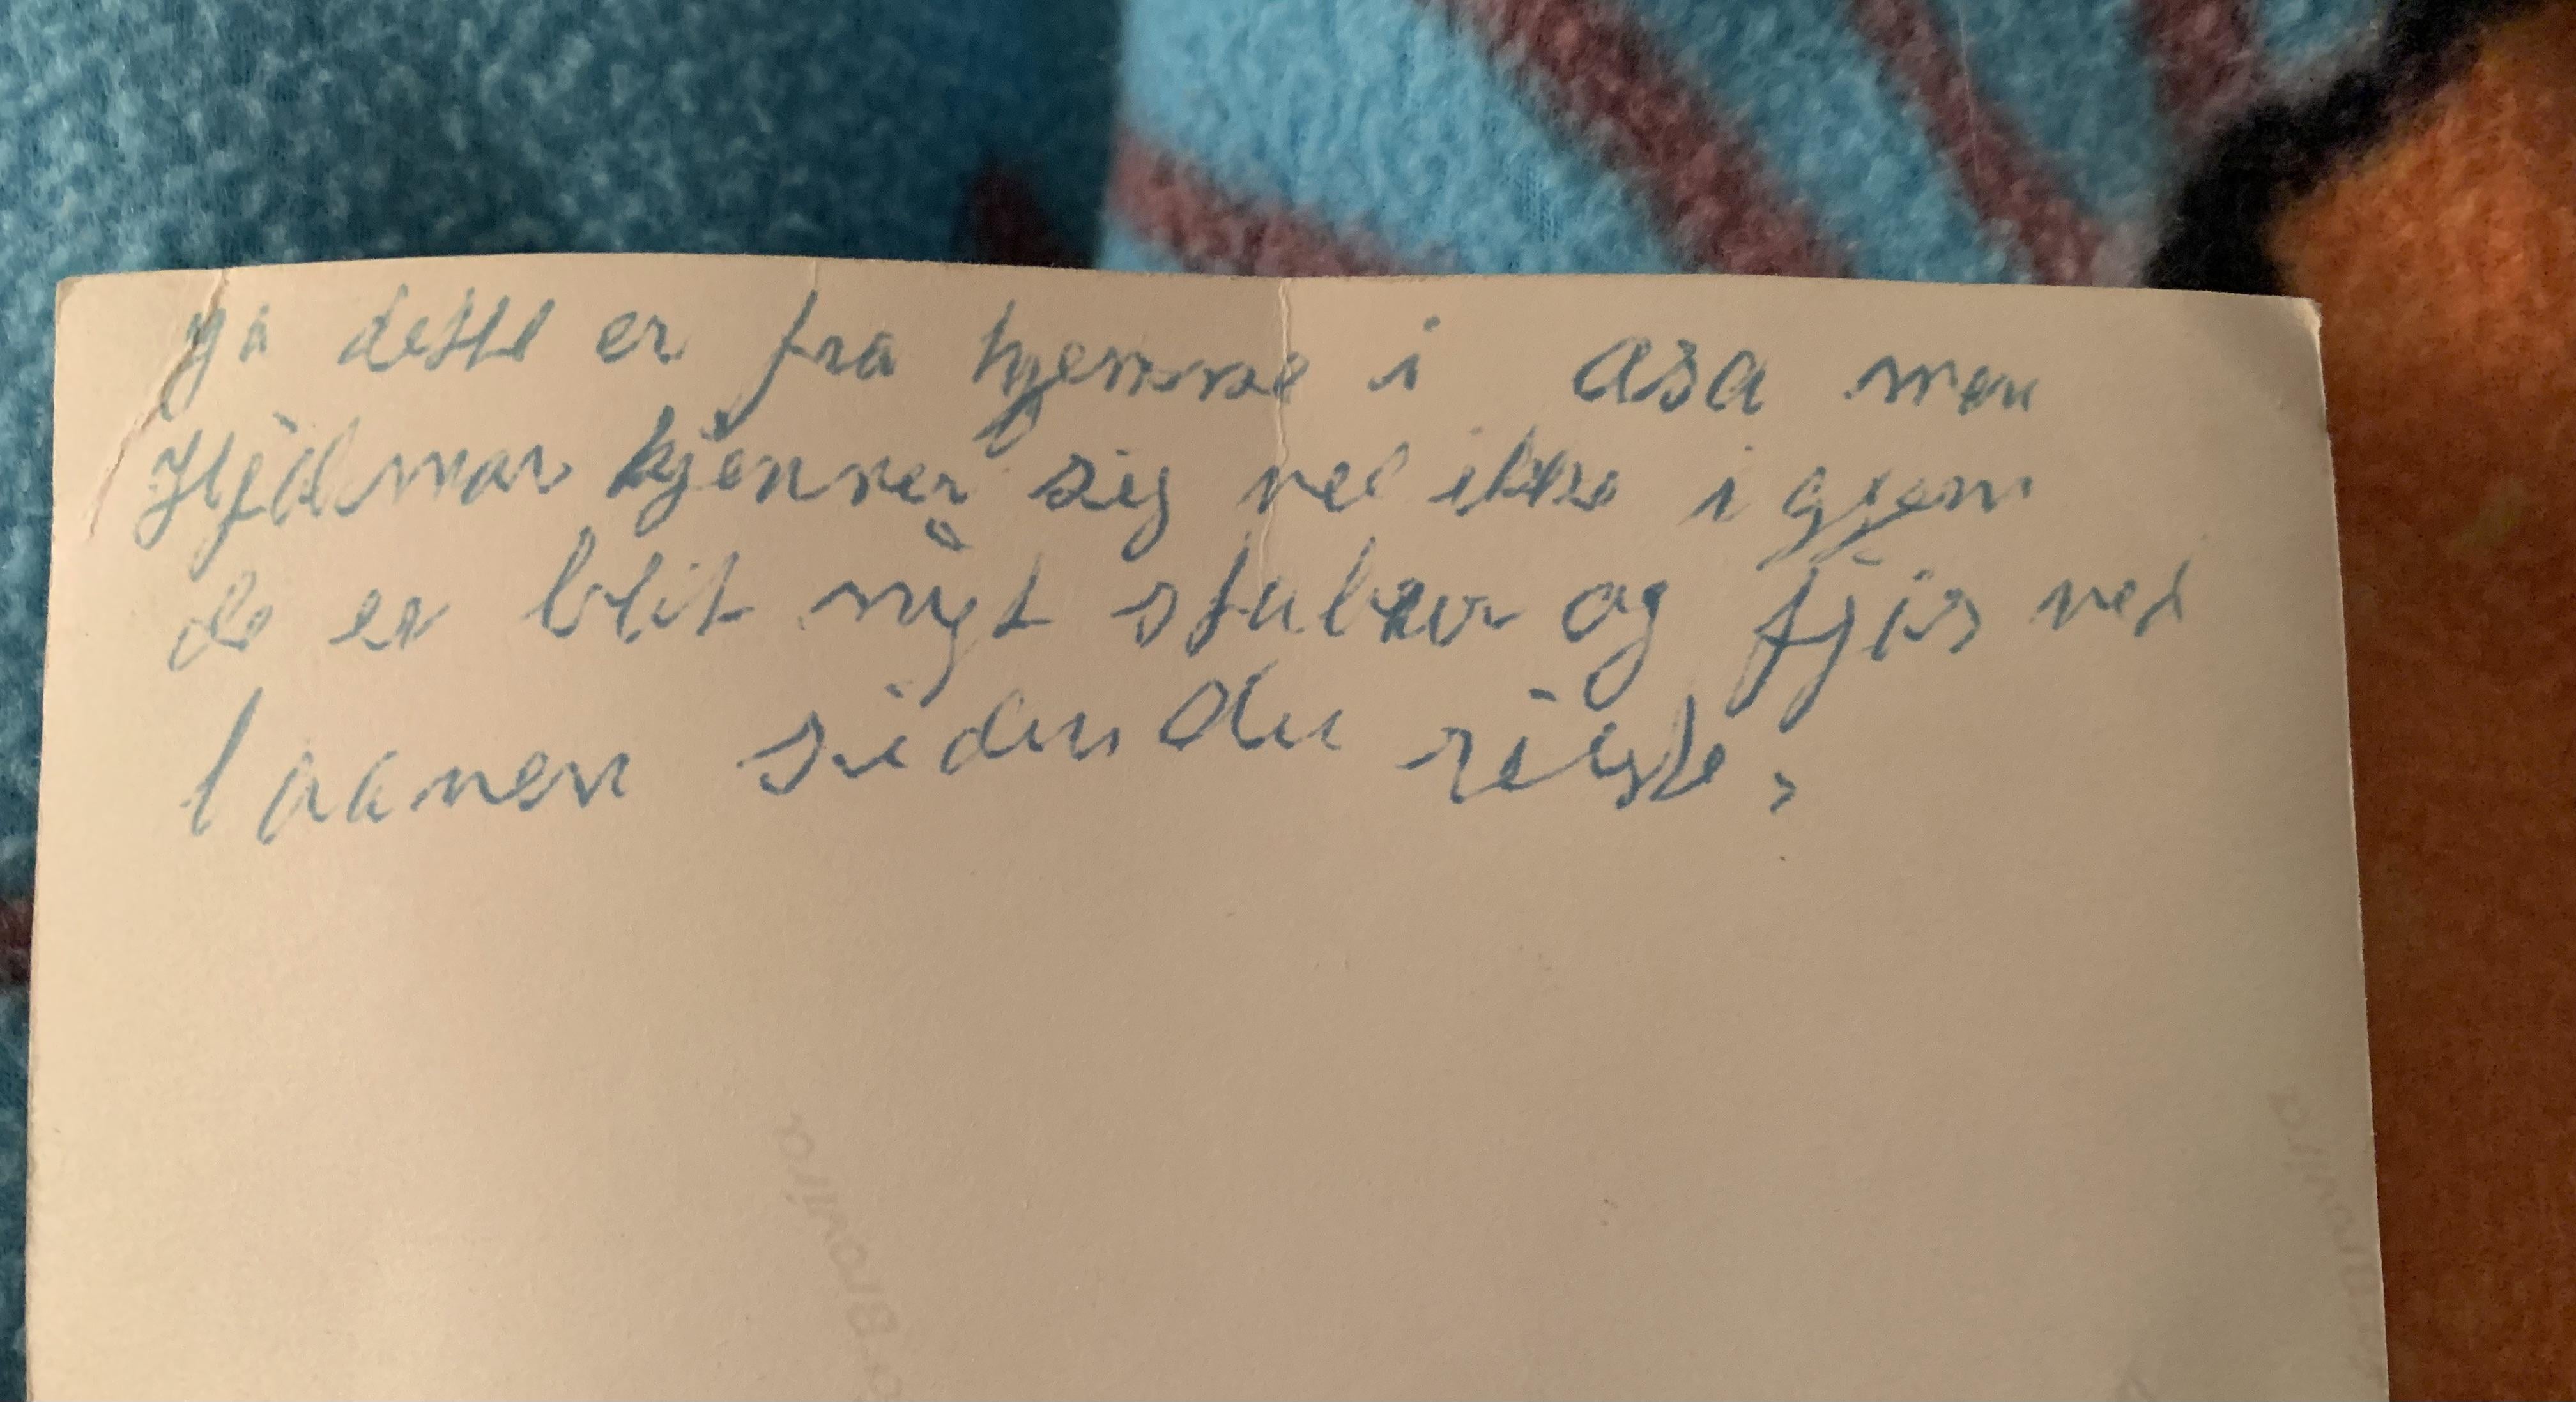 ja dette er fra hjemme i Asa men
Hjalmar kjenner sig vel ikke i gjen
de er blit nyt stabur og fjøs ved
laanen siden du reiste,